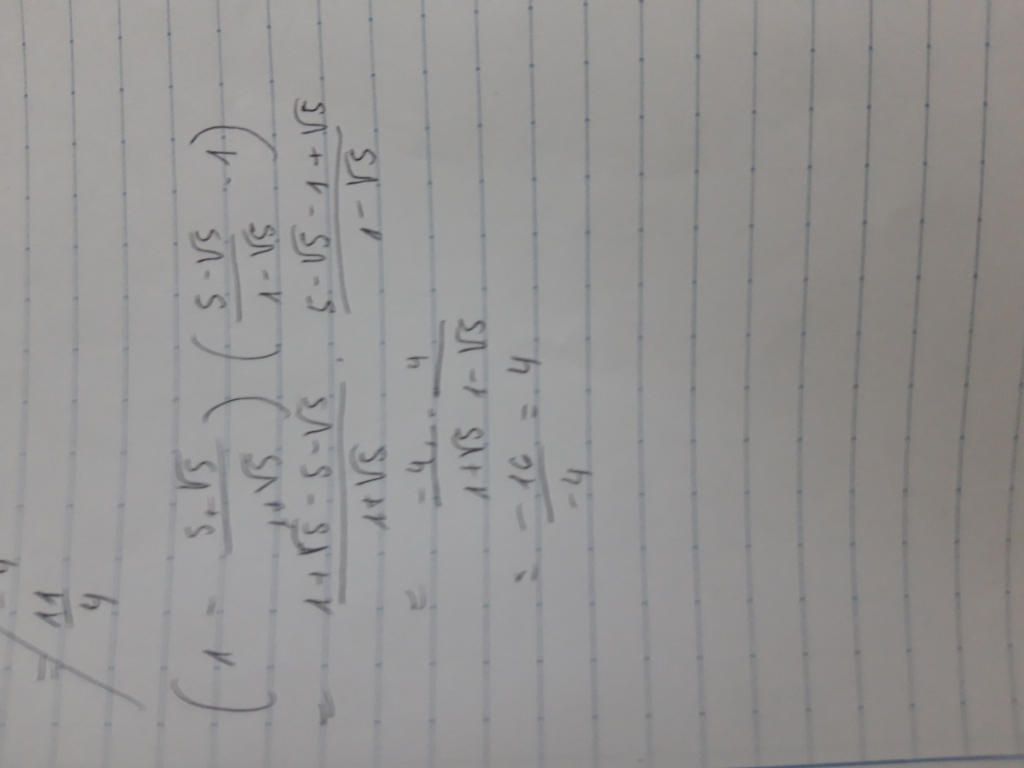 = 11/4
(1 - (5+√5)/(1+√5)) ((5-√5)/(1-√5) - 1)
= (1+√5-5-√5)/(1+√5) . (5-√5-1+√5)/(1-√5)
= -4/(1+√5) . 4/(1-√5)
= -16/-4 = 4